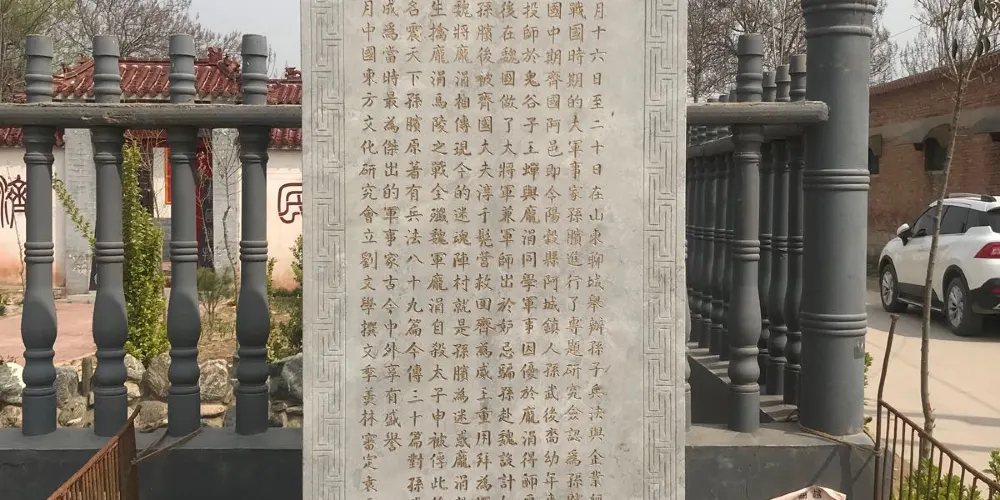 月十六日至二十日在山東聊城舉辦孫子兵法與企業經
戰國時期的大軍事家孫臏進行了專題研究會認為孫臏
國中期齊國阿邑即今陽穀縣阿城鎮人孫武後裔幼年
投師於鬼谷子王蟬與龐涓同學軍事因優於龐涓得師
後在魏國做了大將軍兼軍師出於妒忌騙孫赴魏設計
孫臏後被齊國大夫淳于髡營救回齊為威王重用拜為
魏將龐涓相傳現今的迷魂陣村就是孫臏為迷惑龐涓
生擒龐涓馬陵之戰全殲魏軍龐涓自殺太子申被俘此
名震天下孫臏原著有兵法八十九篇今傳三十篇對孫
成為當時最為傑出的軍事家古今中外享有盛譽
月中國東方文化研究會立劉文學撰文季羨林審定袁